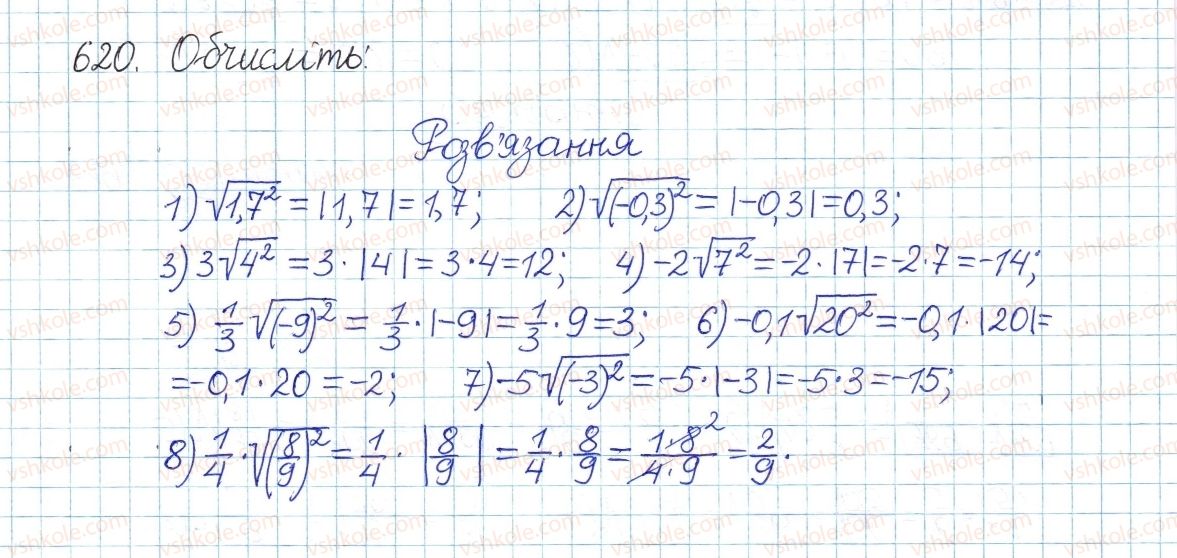 620. Обчисліть:
Розв'язання
1) √1,7² = |1,7| = 1,7; 2) √(-0,3)² = |-0,3| = 0,3;
3) 3√4² = 3 · |4| = 3 · 4 = 12; 4) -2√7² = -2 · |7| = -2 · 7 = -14;
5) 1/3 √(-9)² = 1/3 · |-9| = 1/3 · 9 = 3; 6) -0,1√20² = -0,1 · |20| =
= -0,1 · 20 = -2; 7) -5√(-3)² = -5 · |-3| = -5 · 3 = -15;
8) 1/4 · √(8/9)² = 1/4 · |8/9| = 1/4 · 8/9 = 1·8²/4·9 = 2/9.